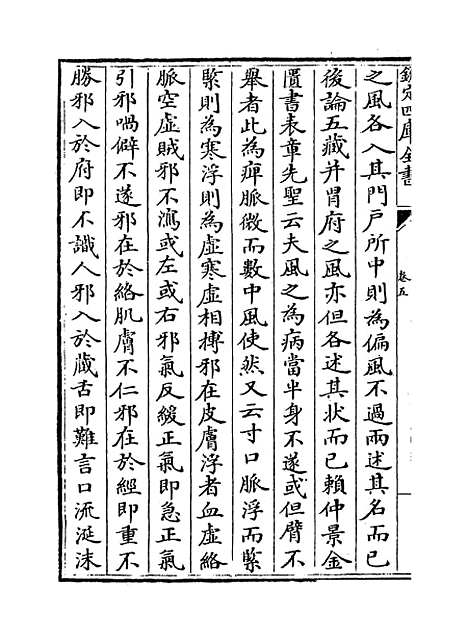 欽定四庫全書
卷五
之風各入其門戶所中則為偏風不過兩述其名而已
後論五藏并胃府之風亦但各述其狀而已賴仲景金
匱書表章先聖云夫風之為病當半身不遂或但臂不
舉者此為痺脈微而數中風使然又云寸口脈浮而緊
緊則為寒浮則為虛寒虛相搏邪在皮膚浮者血虛絡
脈空虛賊邪不瀉或左或右邪氣反緩正氣即急正氣
引邪喎僻不遂邪在於絡肌膚不仁邪在於經即重不
勝邪入於府即不識人邪入於藏舌即難言口流涎沫